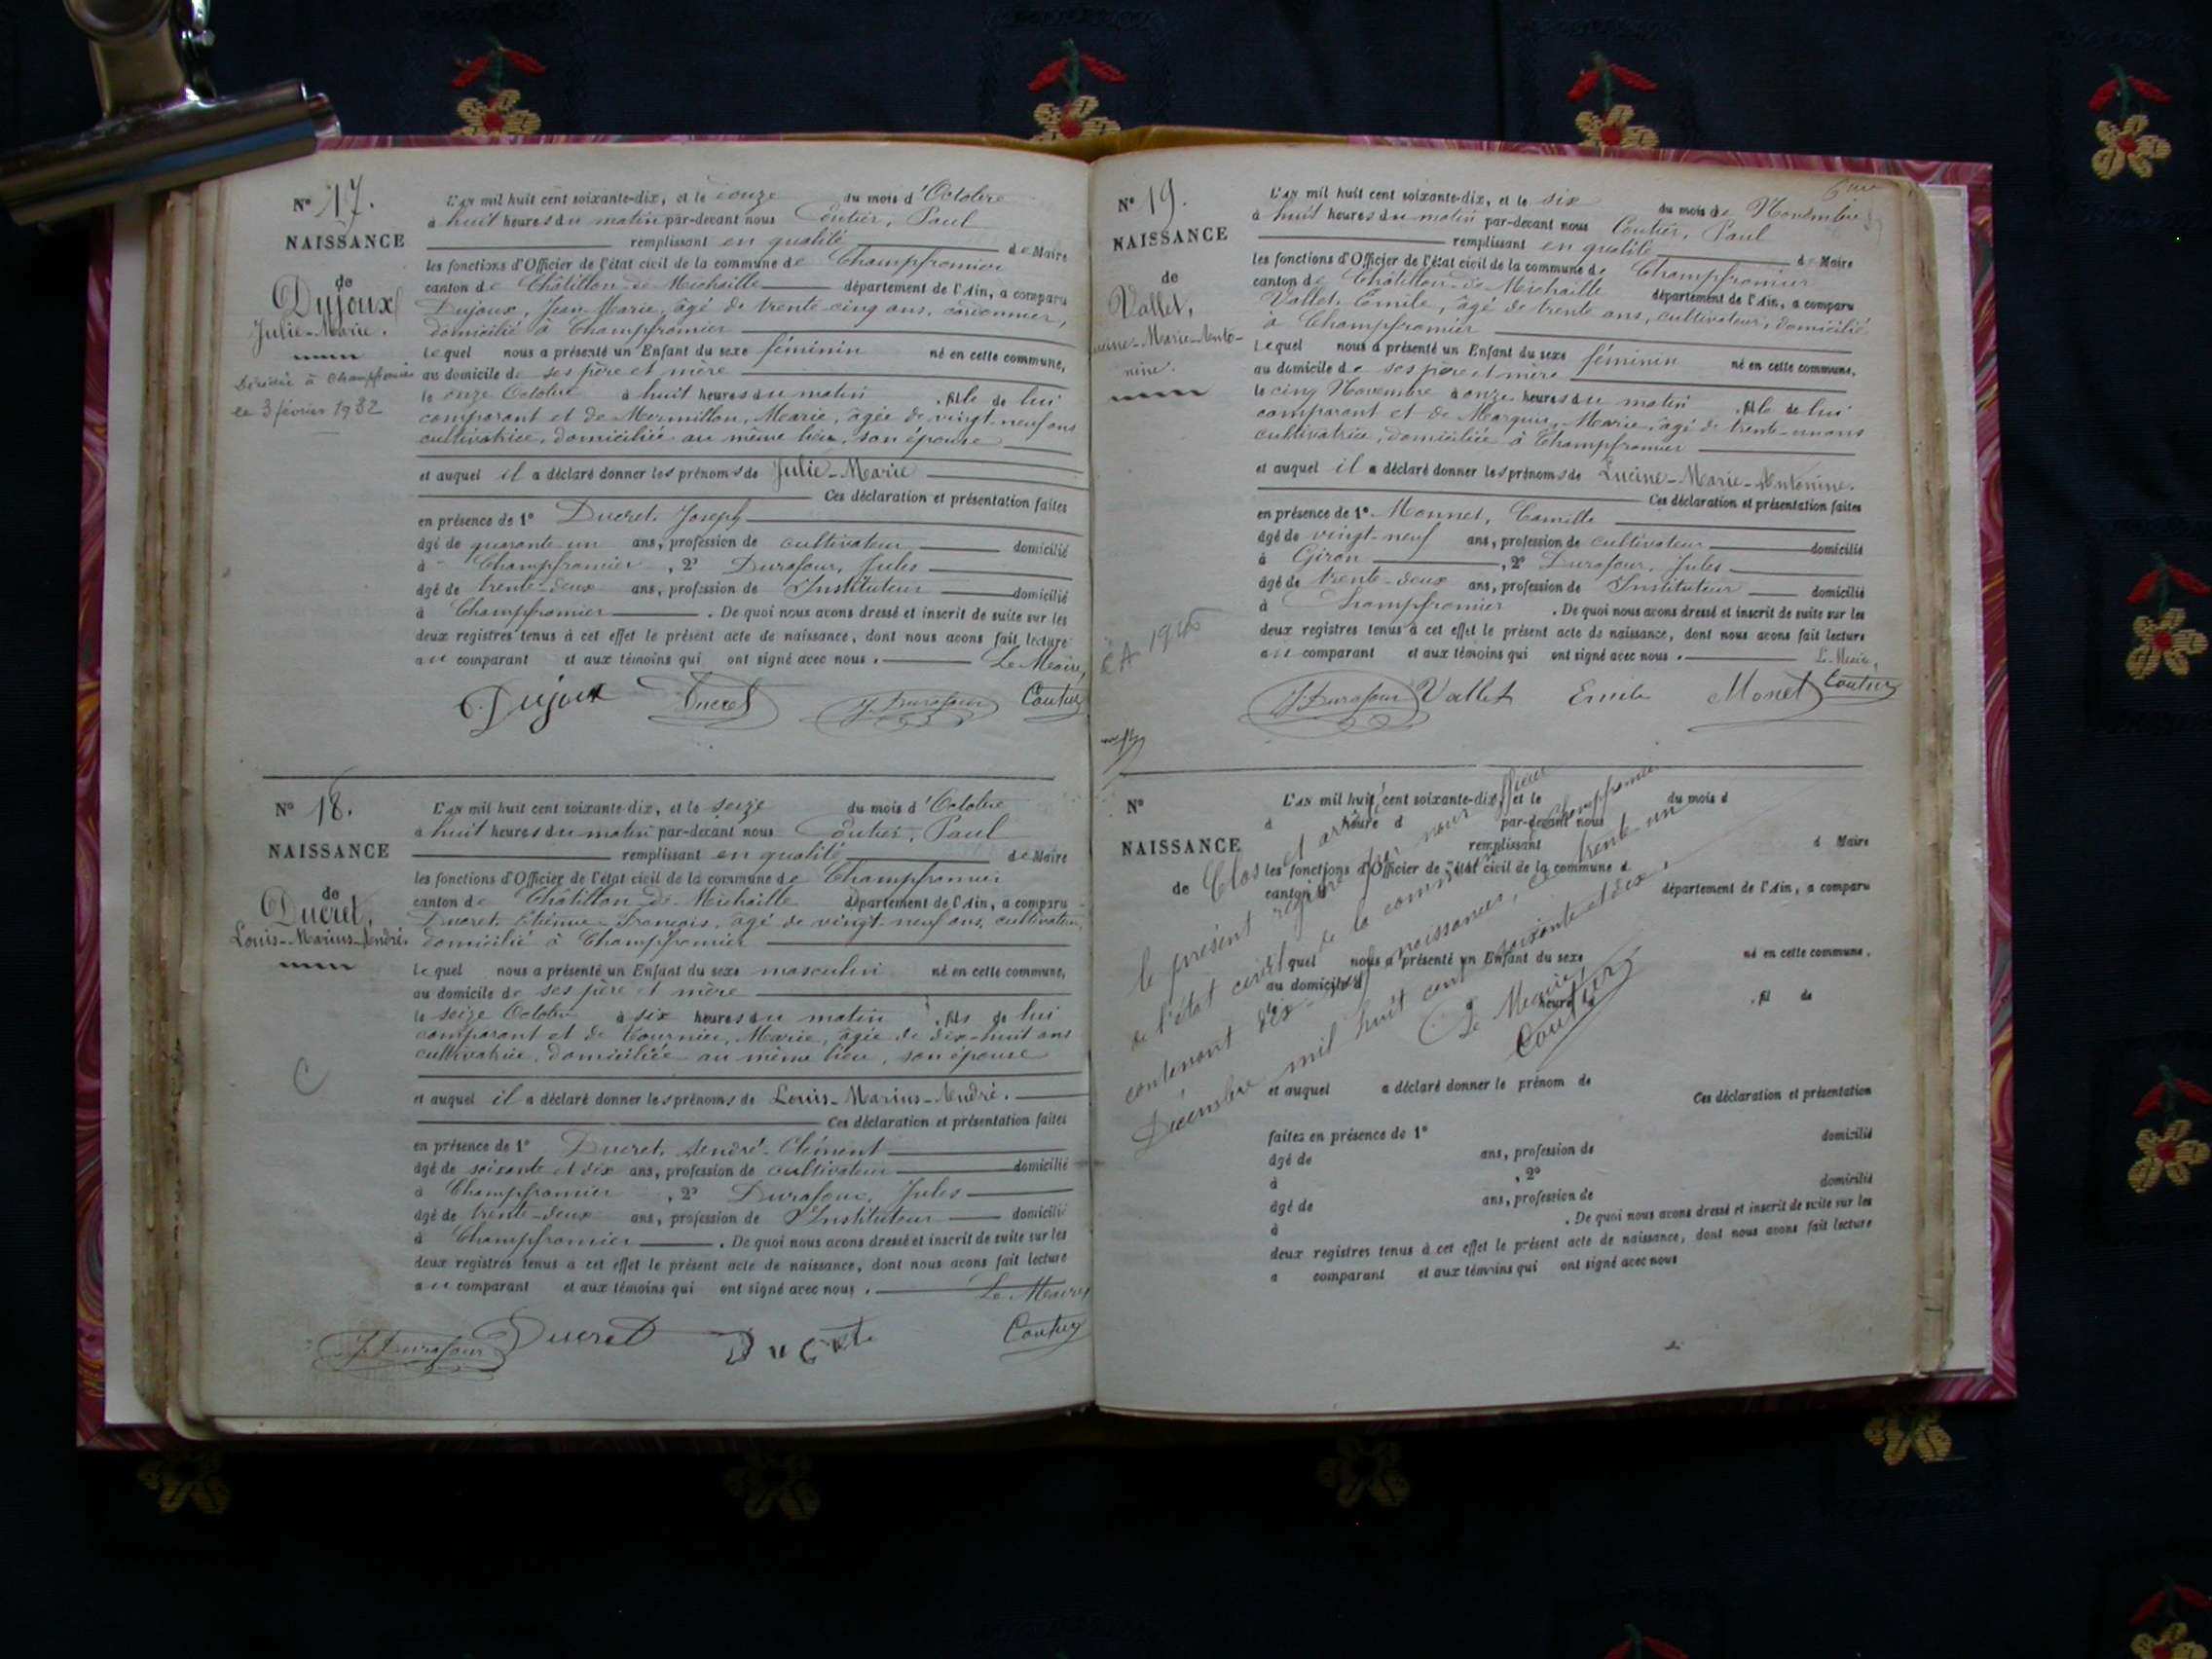 N° 17.
NAISSANCE
de
Dujoux
Julie-Marie.
Décédée à Champfromier
le 3 février 1932
L'an mil huit cent soixante-dix, et le douze du mois d'Octobre
à huit heures du matin par-devant nous Coutier, Paul
remplissant en qualité de Maire
les fonctions d'Officier de l'état civil de la commune de Champfromier
canton de Châtillon-de-Michaille département de l'Ain, a comparu
Dujoux, Jean-Marie, âgé de trente-cinq ans, cordonnier,
domicilié à Champfromier
lequel nous a présenté un Enfant du sexe féminin né en cette commune,
au domicile de ses père et mère
le onze Octobre à huit heures du matin, fille de lui
comparant et de Mermillon, Marie, âgée de vingt-neuf ans
cultivatrice, domiciliée au même lieu, son épouse
et auquel il a déclaré donner les prénoms de Julie-Marie
Ces déclaration et présentation faites
en présence de 1° Ducret, Joseph
âgé de quarante-un ans, profession de cultivateur domicilié
à Champfromier, 2° Durafour, Jules
âgé de trente-deux ans, profession de Instituteur domicilié
à Champfromier. De quoi nous avons dressé et inscrit de suite sur les
deux registres tenus à cet effet le présent acte de naissance, dont nous avons fait lecture
au comparant et aux témoins qui ont signé avec nous. Le Maire,
Dujoux Ducret J. Durafour Coutier
N° 18.
NAISSANCE
de
Ducret,
Louis-Marius-André.
C
L'an mil huit cent soixante-dix, et le seize du mois d'Octobre
à huit heures du matin par-devant nous Coutier, Paul
remplissant en qualité de Maire
les fonctions d'Officier de l'état civil de la commune de Champfromier
canton de Châtillon-de-Michaille département de l'Ain, a comparu
Ducret, Etienne-François, âgé de vingt-neuf ans, cultivateur,
domicilié à Champfromier
lequel nous a présenté un Enfant du sexe masculin né en cette commune,
au domicile de ses père et mère
le seize Octobre à six heures du matin, fils de lui
comparant et de Tournier, Marie, âgée de dix-huit ans
cultivatrice, domiciliée au même lieu, son épouse
et auquel il a déclaré donner les prénoms de Louis-Marius-André.
Ces déclaration et présentation faites
en présence de 1° Ducret, André-Clément
âgé de soixante et dix ans, profession de cultivateur domicilié
à Champfromier, 2° Durafour, Jules
âgé de trente-deux ans, profession de Instituteur domicilié
à Champfromier. De quoi nous avons dressé et inscrit de suite sur les
deux registres tenus à cet effet le présent acte de naissance, dont nous avons fait lecture
au comparant et aux témoins qui ont signé avec nous. Le Maire,
J. Durafour Ducret Ducret Coutier
N° 19.
NAISSANCE
de
Vallet,
Lucine-Marie-Anto-
nine.
L'an mil huit cent soixante-dix, et le six du mois de Novembre
à huit heures du matin par-devant nous Coutier, Paul
remplissant en qualité de Maire
les fonctions d'Officier de l'état civil de la commune de Champfromier
canton de Châtillon-de-Michaille département de l'Ain, a comparu
Vallet, Emile, âgé de trente ans, cultivateur, domicilié
à Champfromier
lequel nous a présenté un Enfant du sexe féminin né en cette commune,
au domicile de ses père et mère
le cinq Novembre à onze heures du matin, fille de lui
comparant et de Marquis, Marie, âgé de trente-un ans
cultivatrice, domiciliée à Champfromier
et auquel il a déclaré donner les prénoms de Lucine-Marie-Antonine.
Ces déclaration et présentation faites
en présence de 1° Monnet, Camille
âgé de vingt-neuf ans, profession de cultivateur domicilié
à Giron, 2° Durafour, Jules
âgé de trente-deux ans, profession de Instituteur domicilié
à Champfromier. De quoi nous avons dressé et inscrit de suite sur les
deux registres tenus à cet effet le présent acte de naissance, dont nous avons fait lecture
au comparant et aux témoins qui ont signé avec nous. Le Maire,
J. Durafour Vallet Emile Monet Coutier
N°
NAISSANCE
de
L'an mil huit cent soixante-dix, et le du mois d
à heure d par-devant nous
remplissant d Maire
les fonctions d'Officier de l'état civil de la commune d
canton d département de l'Ain, a comparu
lequel nous a présenté un Enfant du sexe né en cette commune,
au domicile d
le à heure d, fil de
et auquel a déclaré donner le prénom de
Ces déclaration et présentation
faites en présence de 1°
âgé de ans, profession de domicilié
à , 2°
âgé de ans, profession de domicilié
à . De quoi nous avons dressé et inscrit de suite sur les
deux registres tenus à cet effet le présent acte de naissance, dont nous avons fait lecture
a comparant et aux témoins qui ont signé avec nous
Clos et arrêté
le présent registre par nous officier
de l'état civil de la commune de Champfromier
contenant dix-neuf naissances, ce trente-un
Décembre mil huit cent soixante et dix.
Le Maire,
Coutier